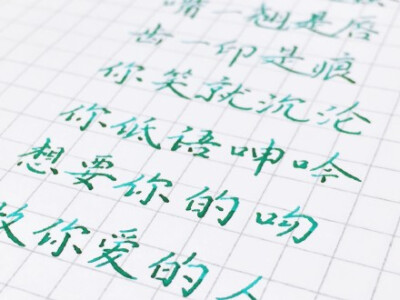 嘴一翘是唇
齿一印是痕
你笑就沉沦
你低语呻吟
想要你的吻
做你爱的人